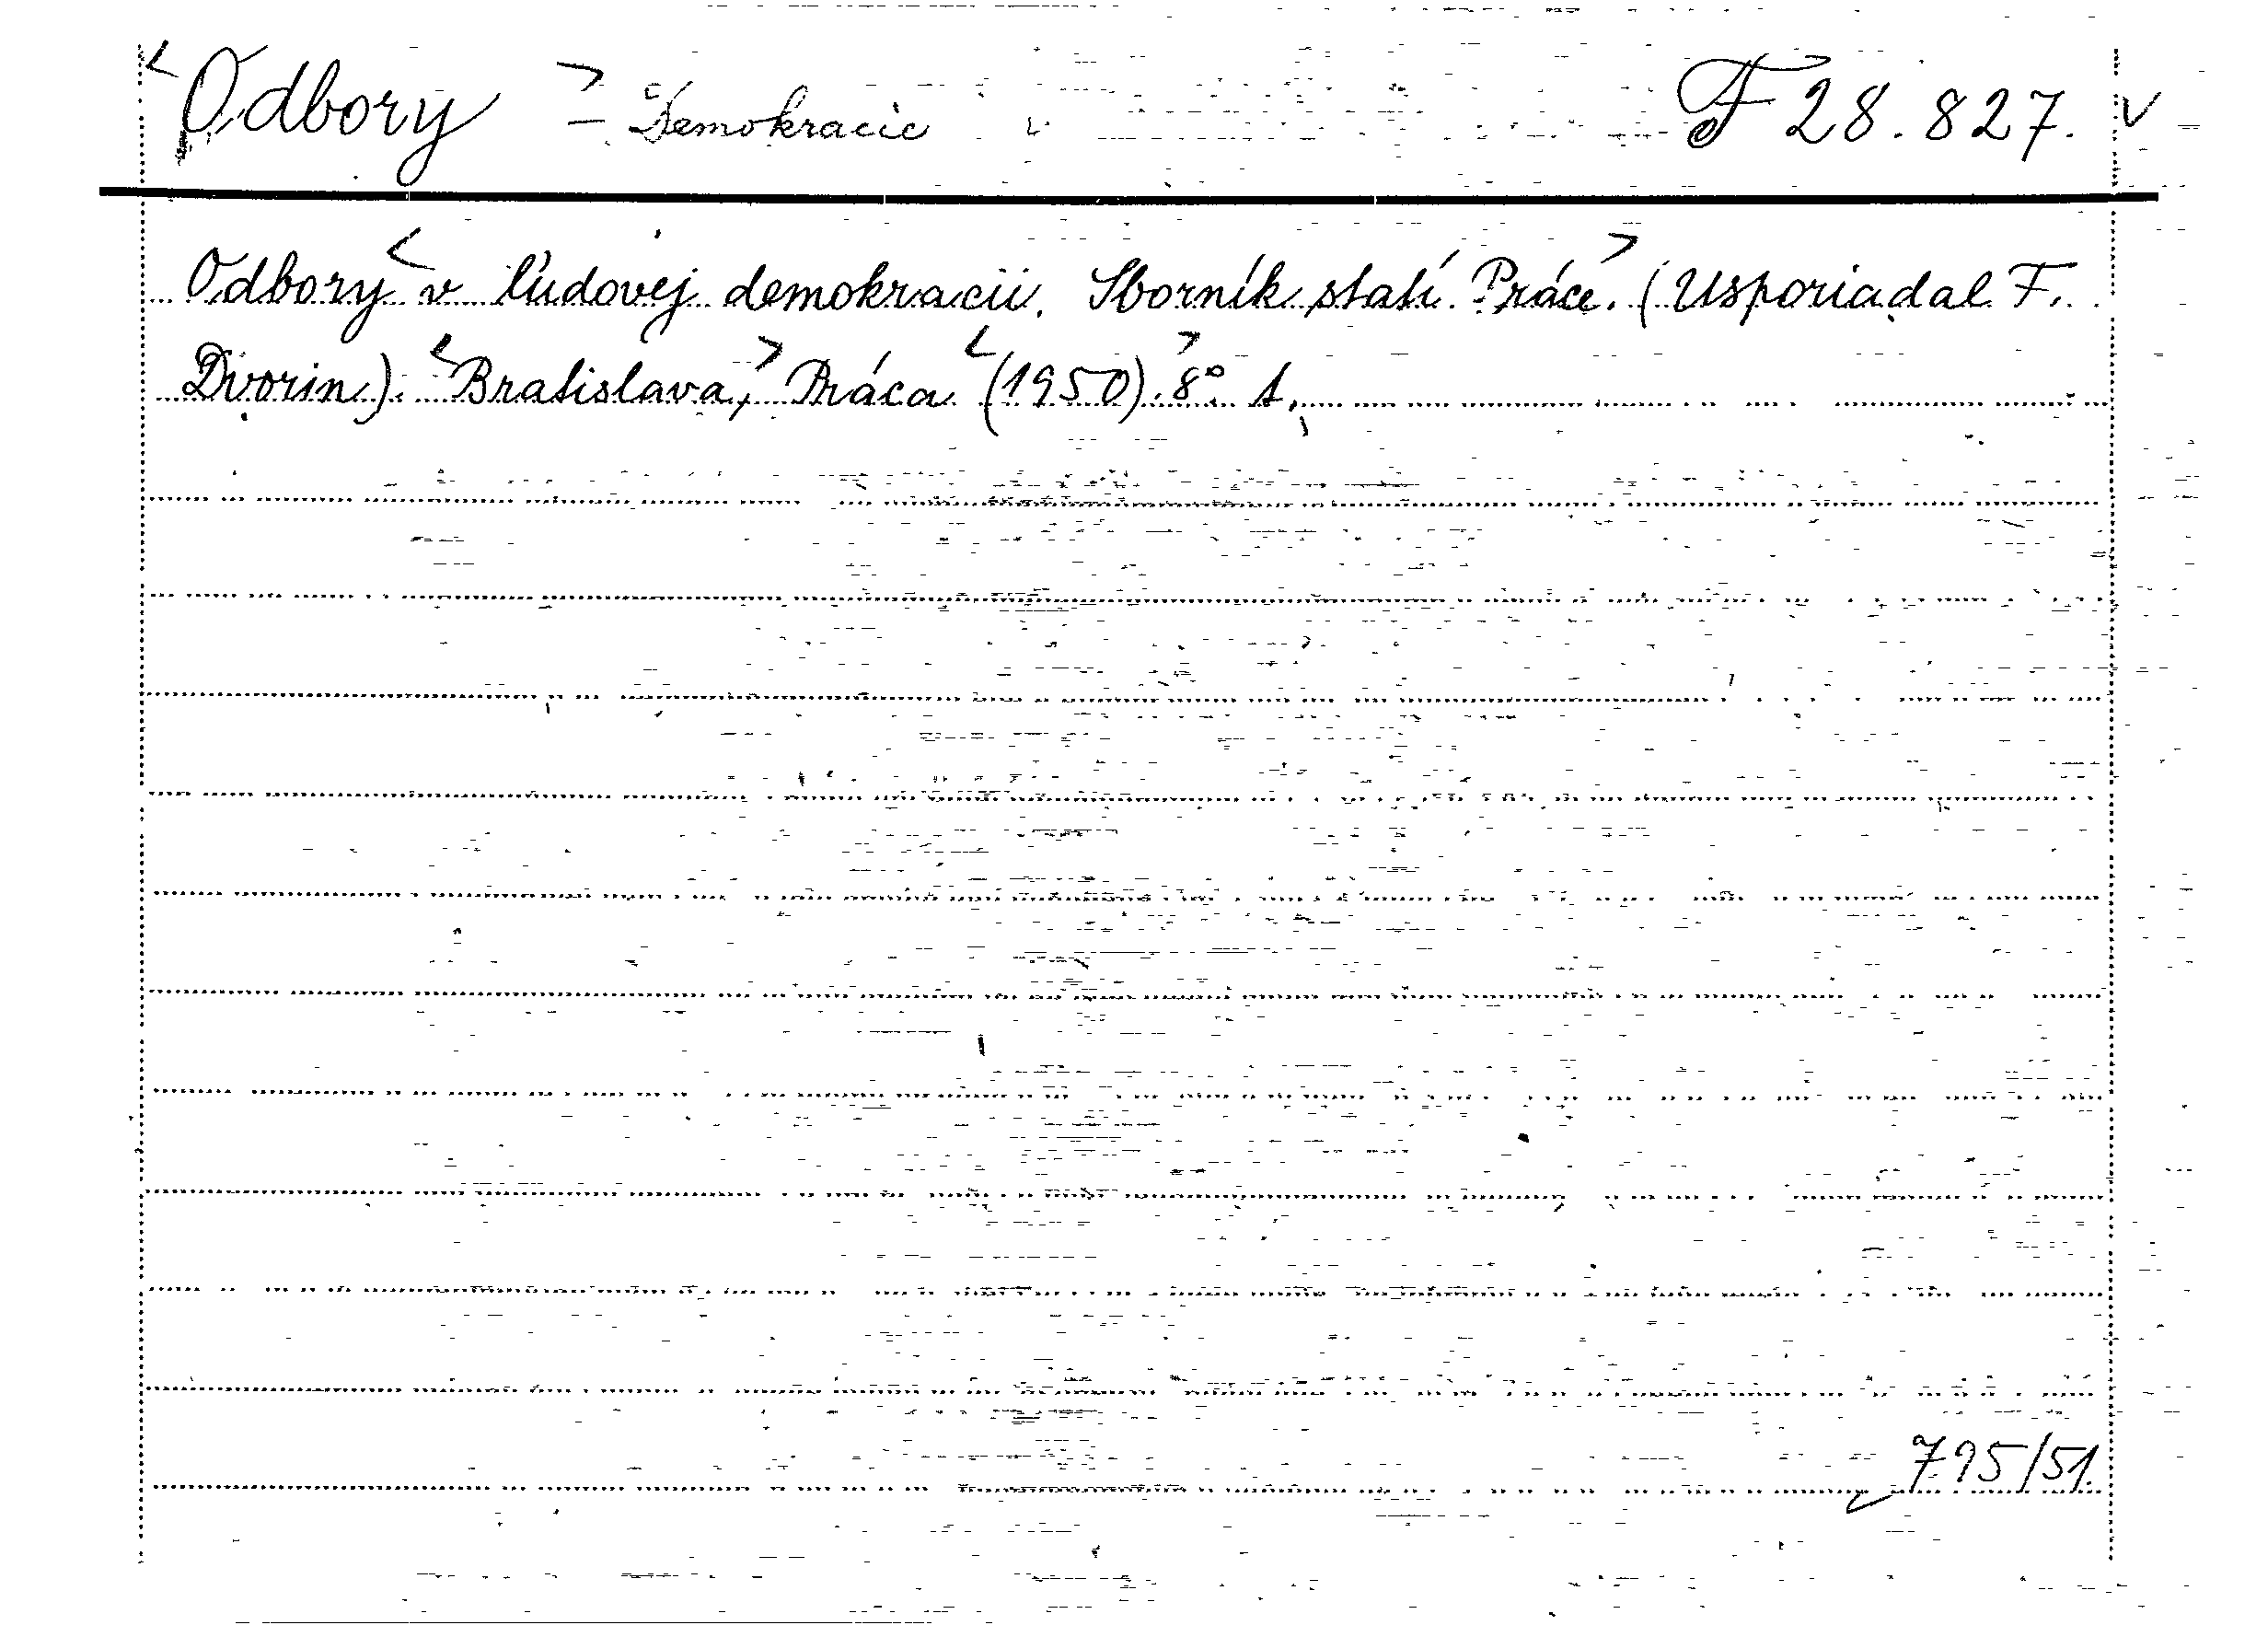 Odbory - Demokracie F 28.827.
Odbory v ľudovej demokracii. Sborník statí Práce. (Usporiadal F.
Dvorin). Bratislava, Práca (1950). 8°. 1.
795/51.